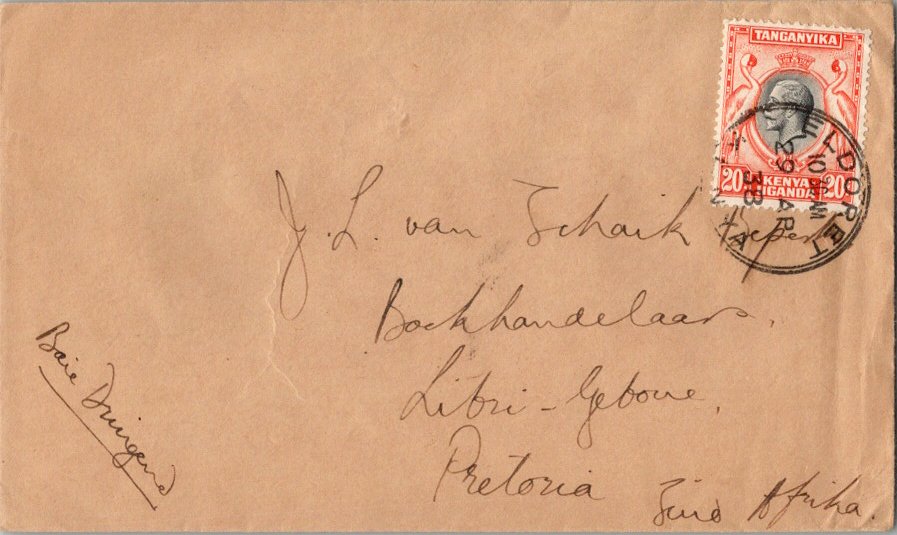 TANGANYIKA
20 KENYA UGANDA 20
ELDORET
10 AM
29 MAR
38
KENYA
J. L. van Schaik Beperk
Boekhandelaars.
Libri-Gebou.
Pretoria
Suid Afrika.
Baie Dringend